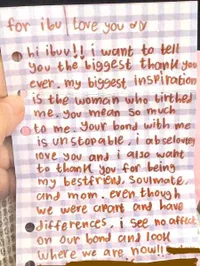 for ibu i love you
hi ibuu!! i want to tell
you the biggest thank you
ever. my biggest inspiration
is the woman who birthed
me. you mean so much
to me. your bond with me
is unstopable. i abseloutey
love you and i also want
to thank you for being
my bestfriend, soulmate,
and mom. even though
we were apart and have
differences, i see no affect
on our bond and look
where we are now!!